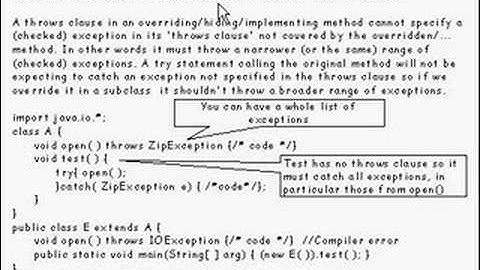 A throws clause in an overriding/hiding/implementing method cannot specify a
(checked) exception in its 'throws clause' not covered by the overridden/...
method. In other words it must throw a narrower (or the same) range of
(checked) exceptions. A try statement calling the original method will not be
expecting to catch an exception not specified in the throws clause so if we
override it in a subclass it shouldn't throw a broader range of exceptions.
You can have a whole list of
exceptions
import java.io.*;
class A {
void open( ) throws ZipException {/* code */}
void test( ) {
try{ open( );
}catch( ZipException e) { /*code*/};
}
}
Test has no throws clause so it
must catch all exceptions, in
particular those from open()
public class E extends A {
void open( ) throws IOException {/* code */} //Compiler error
public static void main(String[ ] arg) { (new E( )).test( ); }
}